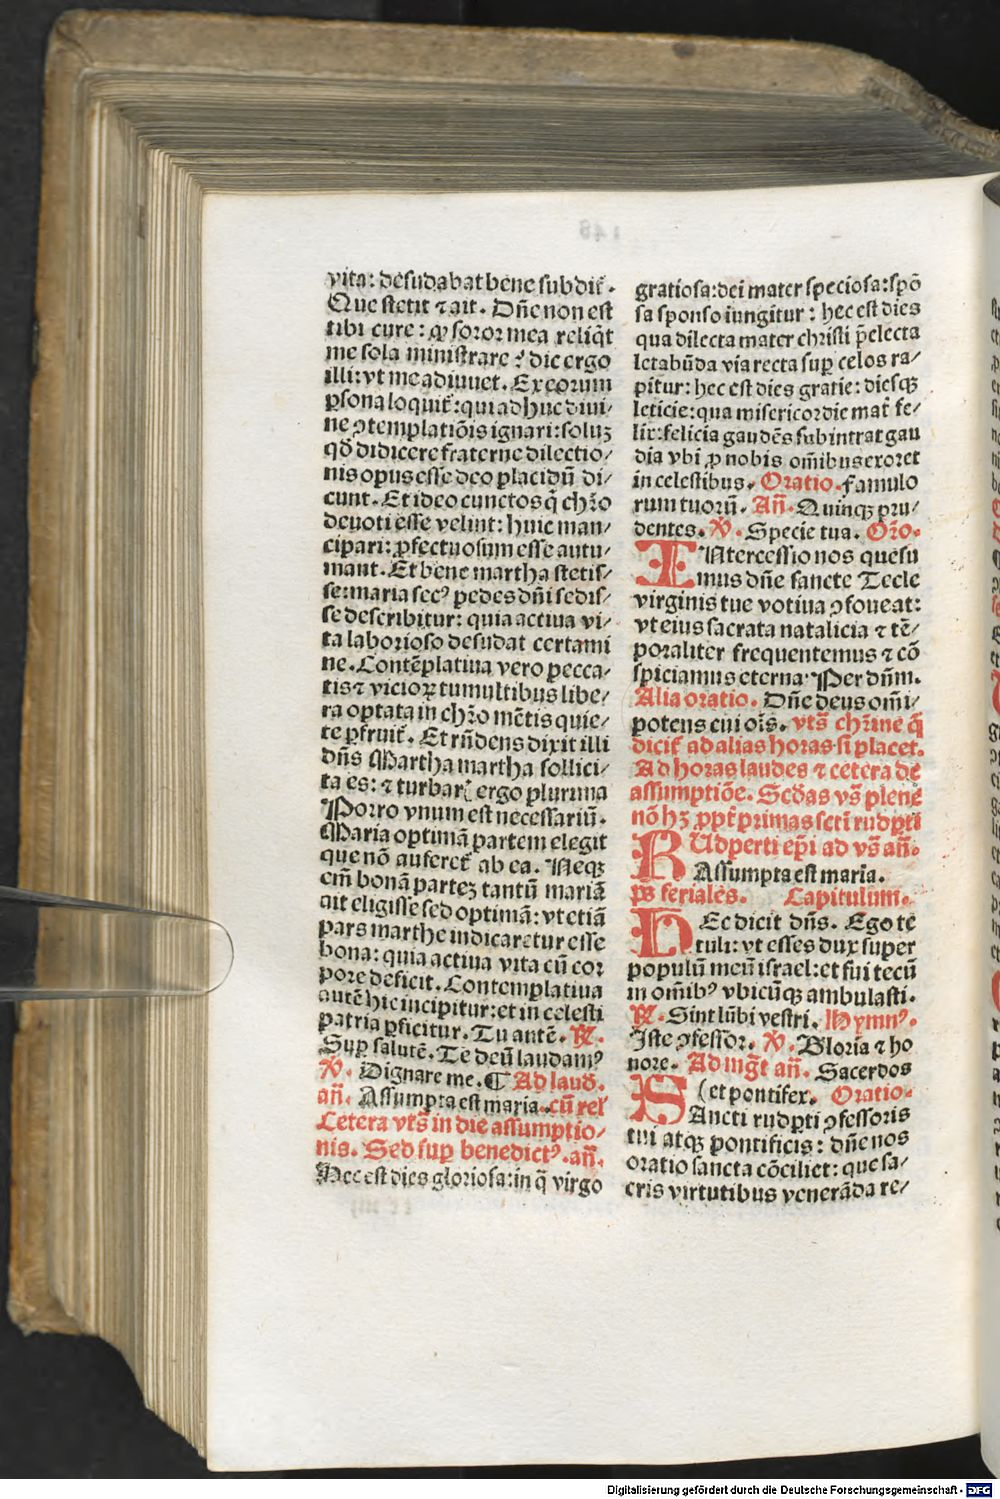 vita: desudabat bene subdit̃.
Que stetit ⁊ ait. Dñe non est
tibi cure: ꝙ soror mea reliq̇t
me sola ministrare? dic ergo
illi: vt me adiuuet. Ex eorum
ꝑsona loquit̃: qui adhuc diui⸗
ne ꝯtemplatiõis ignari: soluꝫ
qđ didicere fraterne dilectio⸗
nis opus esse deo placidũ di⸗
cunt. Et ideo cunctos q̃ chr̃o
deuoti esse velint: huic man⸗
cipari: ꝓfectuosum esse autu⸗
mant. Et bene martha stetis⸗
se: maria secꝰ pedes dñi sedis⸗
se describitur: quia actiua vi⸗
ta laborioso desudat certami
ne. Contẽplatiua vero pecca⸗
tis ⁊ vicioꝝ tumultibus libe⸗
ra optata in chr̃o mẽtis quie⸗
te ꝑfruit̃. Et rñdens dixit illi
dñs Martha martha sollici⸗
ta es: ⁊ turbar̃ ergo plurima
Porro vnum est necessariũ.
Maria optimã partem elegit
que nõ auferet̃ ab ea. Neqꝫ
em̃ bonã parteꝫ tantũ mariã
ait eligisse sed optimã: vt etiã
pars marthe indicaretur esse
bona: quia actiua vita cũ cor
pore deficit. Contemplatiua
autẽ hic incipitur: et in celesti
patria ꝑficitur. Tu autẽ. ℟.
Sup̱ salutẽ. Te deũ laudamꝰ
℣. Dignare me. ¶ Ad laud̃.
añ. Assumpta est maria. cũ rel̃
Cetera vts̃ in die assumptio⸗
nis. Sed sup̱ benedictꝰ. añ.
Hec est dies gloriosa: in q̃ virgo
gratiosa: dei mater speciosa: spõ
sa sponso iungitur: hec est dies
qua dilecta mater christi p̃electa
letabũda via recta sup̱ celos ra⸗
pitur: hec est dies gratie: diesqꝫ
leticie: qua misericordie mat̃ fe⸗
lix: felicia gaudẽs subintrat gau
dia vbi ꝓ nobis om̃ibus exoret
in celestibus. Oratio. Famulo
rum tuorũ. Añ. Quinqꝫ pru⸗
dentes. ℣. Specie tua. Or̃o.
INtercessio nos quesu
mus dñe sancte Tecle
virginis tue votiua ꝯfoueat:
vt eius sacrata natalicia ⁊ tẽ⸗
poraliter frequentemus ⁊ cõ
spiciamus eterna. Per dñm.
Alia oratio. Dñe deus om̃i⸗
potens cui oĩs. vts̃ chr̃ine q̃
dicit̃ ad alias horas si placet.
Ad horas laudes ⁊ cetera de
assumptiõe. Scđas vs̃ plene
nõ hꝫ ꝓpt̃ primas scti rudꝑti
RUdperti ep̃i ad vs̃ añ.
Assumpta est maria.
p̃s feriales. Capitulum.
HEc dicit dñs. Ego te
tuli: vt esses dux super
populũ meũ israel: et fui tecũ
in om̃ibꝰ vbicũqꝫ ambulasti.
℟. Sint lũbi vestri. Hymnꝰ.
Iste ꝯfessor. ℣. Gloria ⁊ ho
nore. Ad mg̃t añ. Sacerdos
(et pontifex. Oratio.
SAncti rudꝑti ꝯfessoris
tui atqꝫ pontificis: dñe nos
oratio sancta cõciliet: que sa⸗
cris virtutibus venerãda re⸗
Digitalisierung gefördert durch die Deutsche Forschungsgemeinschaft - DFG